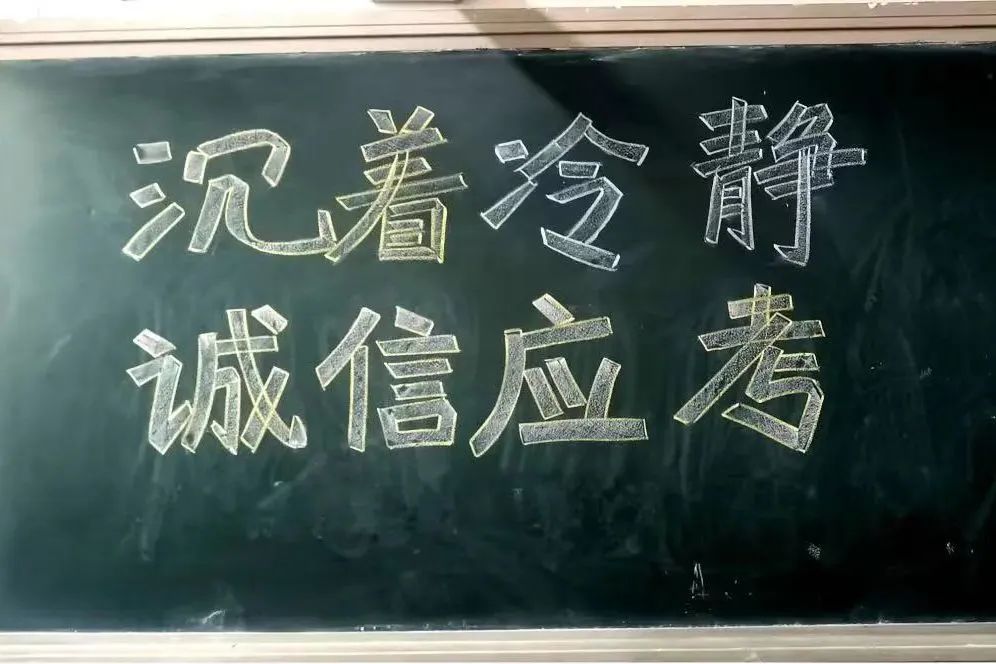 沉着冷静
诚信应考